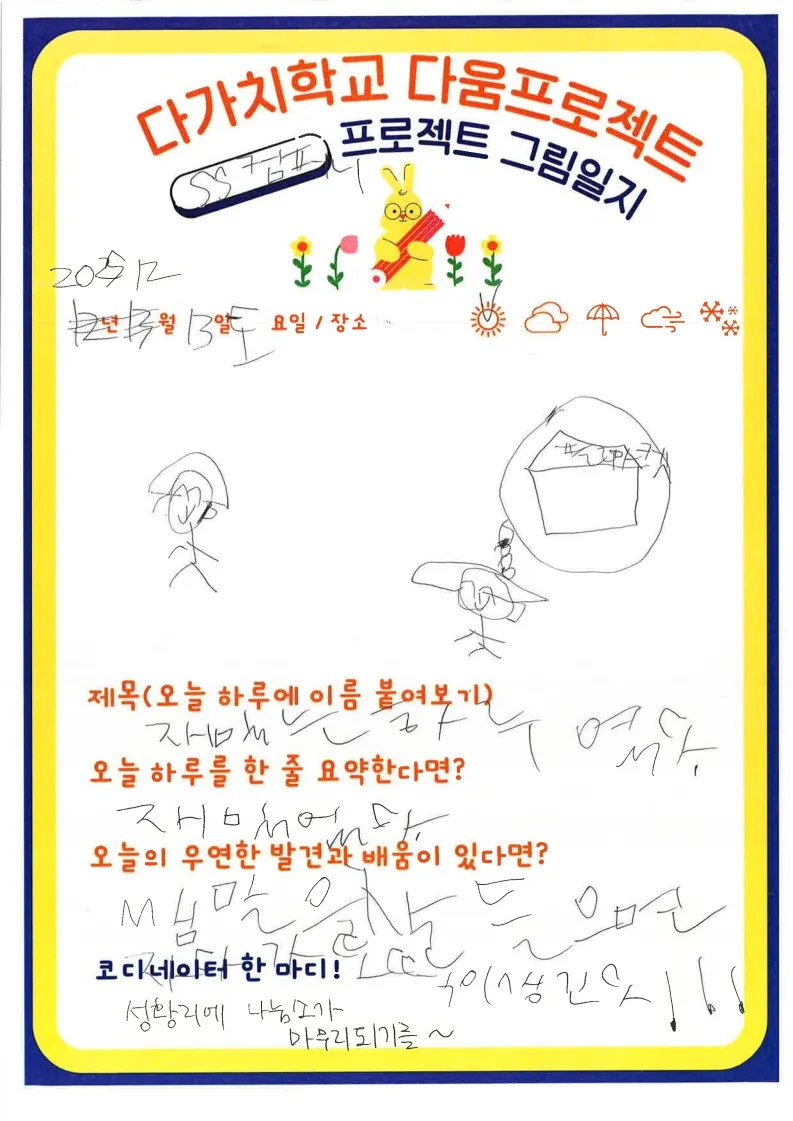 다가치학교 다움프로젝트
프로젝트 그림일지
SS컴퍼니
2025 12
년 월 13일 토 요일 / 장소
제목(오늘 하루에 이름 붙여보기)
재미있는 하루 였다.
오늘 하루를 한 줄 요약한다면?
재미있었다.
오늘의 우연한 발견과 배움이 있다면?
쌤 말을 잘 들으면
코디네이터 한 마디!
이 생긴다!!!
성황리에 나눔소가
마무리되기를~